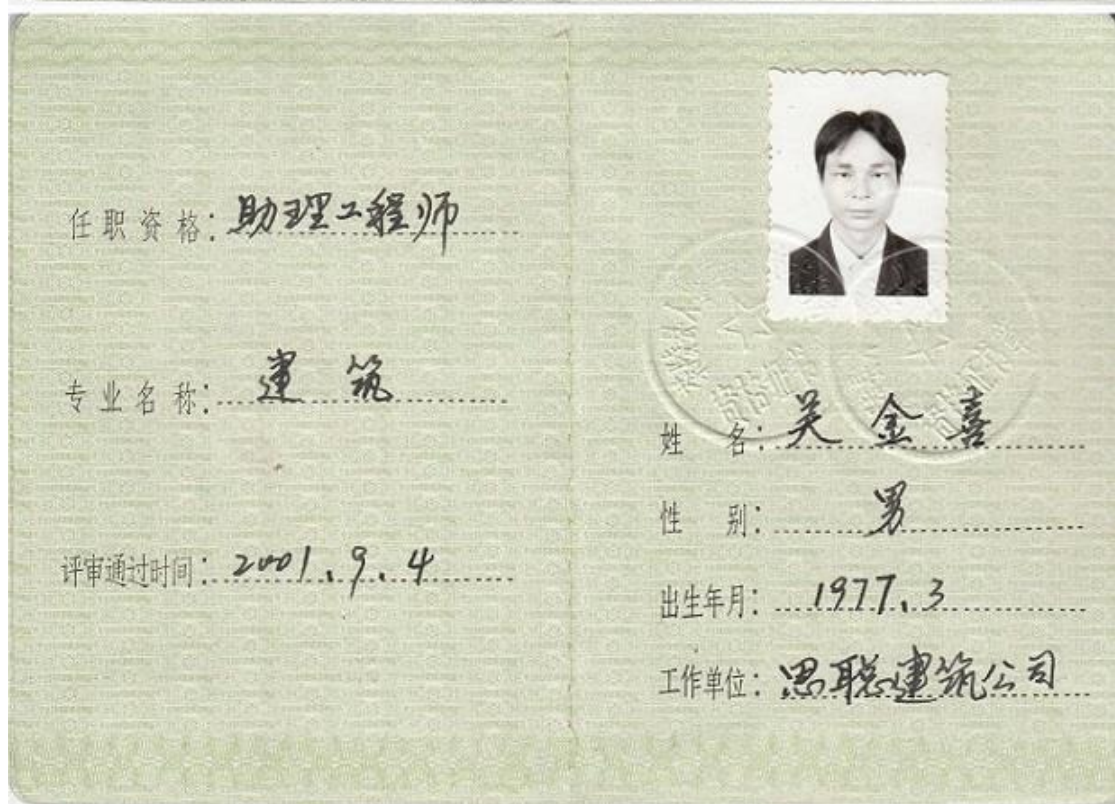 任职资格：助理工程师
专业名称：建筑
评审通过时间：2001.9.4
姓名：关金喜
性别：男
出生年月：1977.3
工作单位：思聪建筑公司